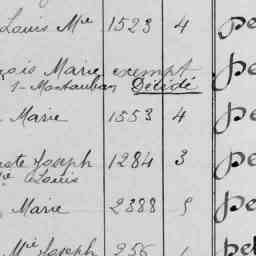 Louis Mie 1523 4 pe
çois Marie exempt pe
1-Montauban Décédé
Marie 1553 4 pe
Joseph 1284 3 pe
Louis
Marie 2388 5 pe
Mie Joseph 256 pe